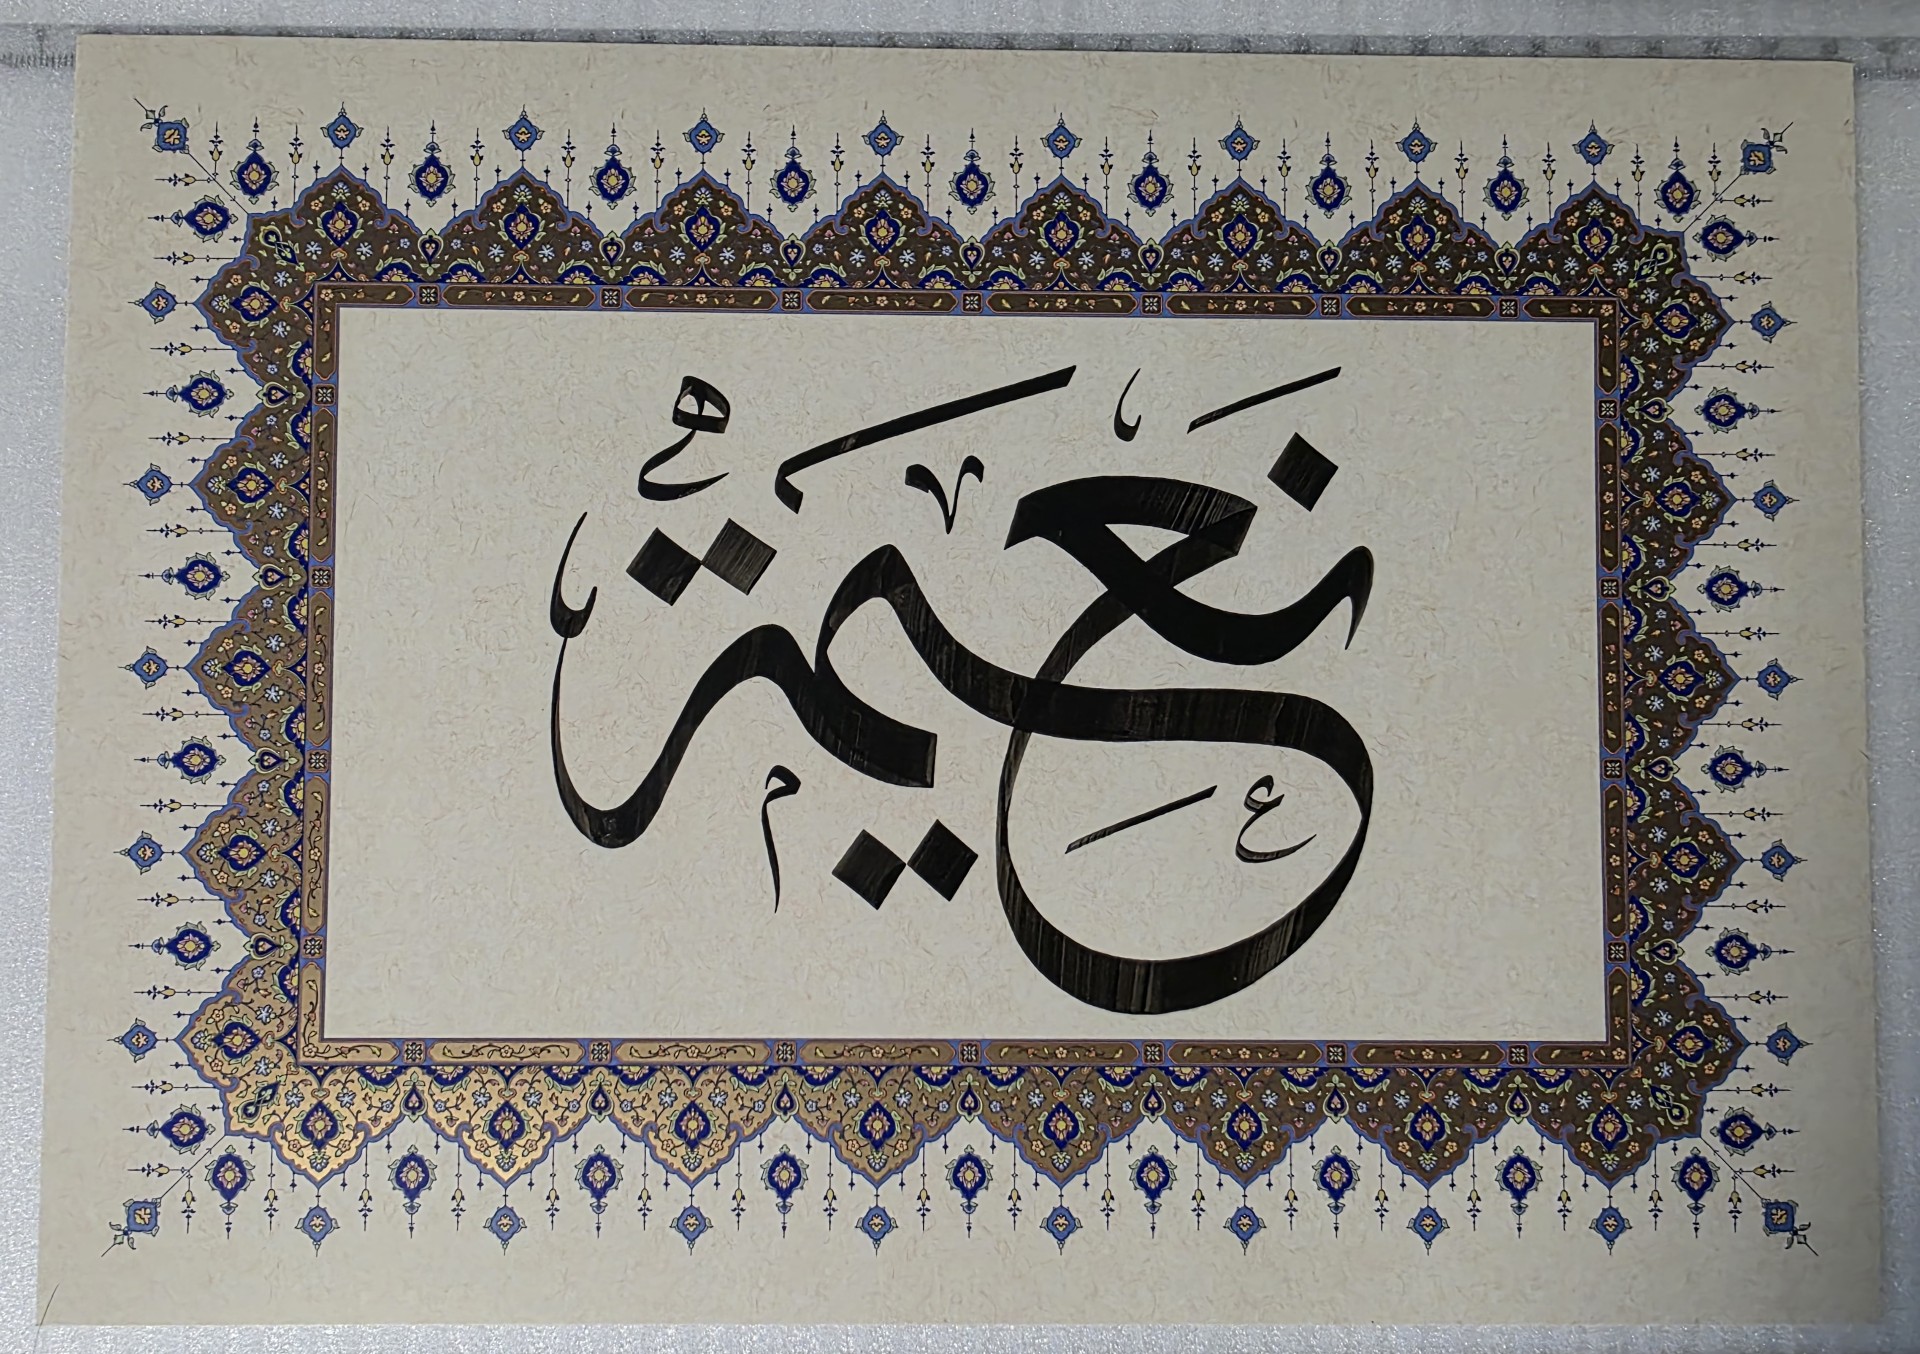 نَعِيمَة